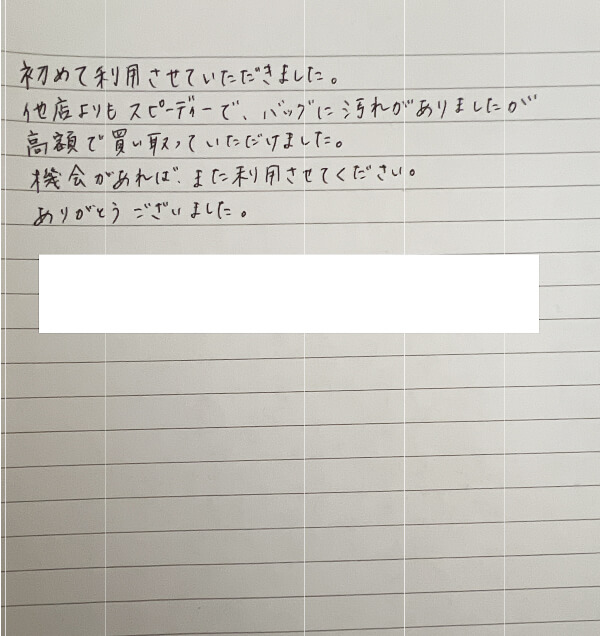 初めて利用させていただきました。
他店よりもスピーディーで、バッグに汚れがありましたが
高額で買い取っていただけました。
機会があれば、また利用させてください。
ありがとうございました。